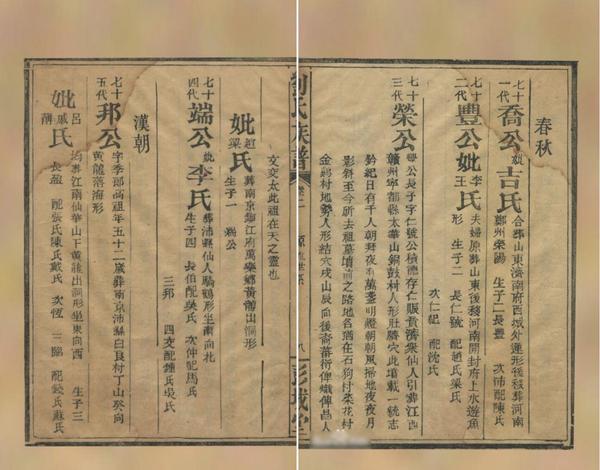 春秋
七十一代 喬公 妣吉氏 合葬山東濟南府西城外蓮形後移葬河南鄭州滎陽 生子二 長豐 次沛配陳氏
七十二代 豐公 妣李王氏 夫婦原葬山東後移河南開封府上水遊魚形 生子二 長仁號 配趙氏梁氏
次仁杞 配沈氏
七十三代 榮公 豐公長子字仁號公積德存仁賑貴濟衆仙人引葬江西贛州寧都縣太華山銅鼓村人形肚臍穴此墳載一統志
鈐記日有千人朝拜夜有萬盞明燈朝朝風掃地夜夜月
影斜至今所去祖墓墳前之路地名猶在石狗村菜花村
金 村地勢人形結穴戌山辰向後裔蕃衍俾熾俾昌人
文交太此祖在天之靈也
妣趙梁氏 葬南京鎮江府萬 鄉黃 出洞形
生子一 端公
七十四代 端公 妣李氏 葬沛縣仙人騎鶴形坐南向北 生子四 長伯配吳氏 次仲配馬氏
三邦 四交配鍾氏吳氏
漢朝
七十五代 邦公 字季即高祖年五十二歲葬南京沛縣白良村丁山癸向黃龍落海形
妣呂戚薄氏 均葬江南仙華山下黃龍出洞形坐東向西 生子三
長盈 配張氏陳氏戴氏 次恆 三 配 氏蘇氏
劉氏族譜 卷一 源流世系 八 彭城堂